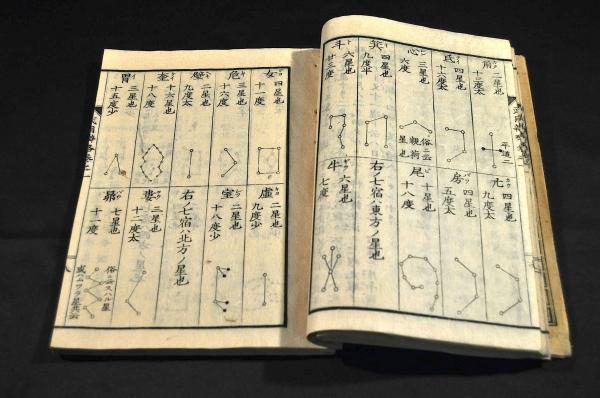 角
二星也
十二度太
平道二
亢
四星也
九度太
氐
四星也
十六度太
房
四星也
五度太
心
三星也
六度
俗ニ云
親荷
星也
尾
十星也
十八度
箕
四星也
九度半
右七宿ハ東方ノ星也
斗
六星也
廿三度
牛
六星也
七度
女
四星也
十一度
虚
二星也
九度少
危
三星也
十六度
室
二星也
十八度少
壁
二星也
九度太
右ノ七宿ハ北方ノ星也
奎
十六星也
十八度
婁
三星也
十二度太
胃
三星也
十五度少
昴
七星也
十一度
俗ニ云スハル星